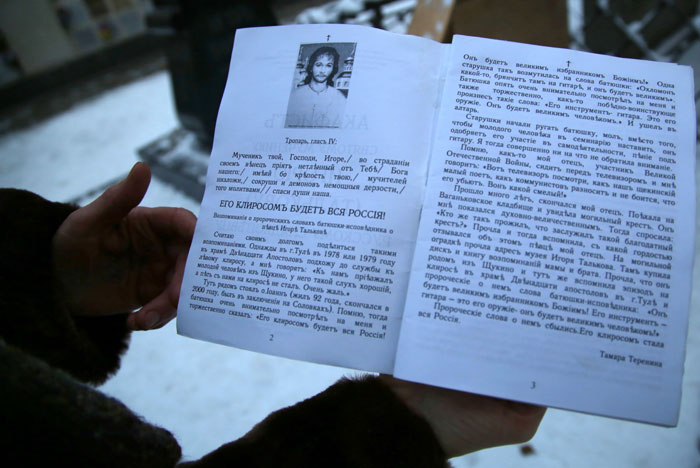 Тропарь, гласъ IV:
Мученикъ твой, Господи, Игоре,/ во страданіи
своемъ вѣнецъ пріятъ нетлѣнный отъ Тебѣ,/ Бога
нашего;/ имѣяй бо крѣпость твою,/ мучителей
низложи,/ сокруши и демоновъ немощныя дерзости,/
того молитвами,// спаси души наша.
ЕГО КЛИРОСОМЪ БУДЕТЪ ВСЯ РОССІЯ!
Воспоминанія о пророческихъ словахъ батюшки-исповѣдника о
пѣвцѣ Игорѣ Тальковѣ
Считаю своимъ долгомъ подѣлиться такими
воспоминаніями. Однажды въ г.Тулѣ въ 1978 или 1979 году
въ храмѣ Двѣнадцати Апостоловъ подхожу до службы къ
лѣвому клиросу, а мнѣ говорятъ: «Къ намъ пріѣзжалъ
молодой человѣкъ изъ Щукино, у него такой слухъ хорошій,
а пѣть съ нами на клиросѣ не сталъ. Очень жаль.»
Тутъ рядомъ стоялъ о.Іоаннъ (жилъ 92 года, скончался въ
2000 году, былъ въ заключеніи на Соловкахъ). Помню, тогда
батюшка очень внимательно посмотрѣлъ на меня и
торжественно сказалъ: «Его клиросомъ будетъ вся Россія!
2
Онъ будетъ великимъ избранникомъ Божіимъ!» Одна
старушка такъ возмутилась на слова батюшки: «Охломонъ
какой-то, бренчитъ тамъ на гитарѣ, и онъ будетъ великимъ».
Батюшка опять очень внимательно посмотрѣлъ на меня и
также торжественно, какъ-то побѣдно-воинствующе
произнесъ такіе слова: «Его инструментъ- гитара. Это его
оружіе. Онъ будетъ великимъ человѣкомъ.» И ушелъ въ
алтарь.
Старушки начали ругать батюшку, молъ, вмѣсто того,
чтобы молодого человѣка въ семинарію наставить, онъ
одобряетъ его участіе въ самодѣятельности, пѣніе подъ
гитару. Я тогда совершенно ни на что не обратила вниманіе.
Помню, какъ-то мой отецъ, участникъ Великой
Отечественной Войны, сидитъ передъ телевизоромъ и мнѣ
говоритъ: «Вотъ телевизоръ посмотри, какъ нашъ щекинскій
малый поетъ, какъ коммунистовъ разноситъ и не боится, что
его убьютъ. Вонъ какой смелый!»
Прошло много лѣтъ, скончался мой отецъ. Поѣхала на
Ваганьковское кладбище и увидѣла могильный крестъ. Онъ
мнѣ показался духовно-величественнымъ. Тогда спросила:
«Кто же такъ прожилъ, что заслужилъ такой благодатный
крестъ?» Прочла и тогда вспомнила, съ какой гордостью
отзывался объ этомъ пѣвцѣ мой отецъ. На могильной
оградкѣ прочла адресъ музея Игоря Талькова. Тамъ купила
дискъ и книгу воспоминаній мамы и брата. Прочла, что онъ
родомъ изъ Щекино и тутъ же вспомнила эпизодъ на
клиросѣ въ храмѣ Двѣнадцати апостоловъ въ г.Тулѣ и
пророческіе о немъ слова батюшки-исповѣдника: «Онъ
будетъ великимъ избранникомъ Божіимъ! Его инструментъ -
гитара – это его оружіе- онъ будетъ великимъ человѣкомъ!»
Пророческіе слова о немъ сбылись.Его клиросомъ стала
вся Россія.
Тамара Теренина
3